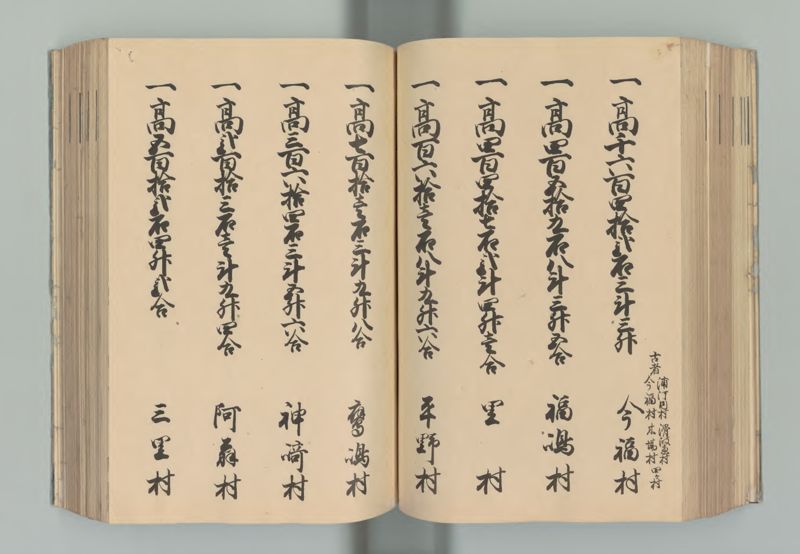 一高千六百四拾弐石三斗三升 今福村
古者 浦河内村 滑栄村
今福村 木場村 四ヶ村
一高四百五拾九石八斗三升五合 福嶋村
一高四百四拾七石弐斗四升壱合 里村
一高百六拾壱石八斗九升六合 平野村
一高七百拾壱石三斗九升八合 鷹嶋村
一高三百六拾四石三斗五升六合 神﨑村
一高弐百拾三石壱斗九升四合 阿翁村
一高五百拾弐石四升弐合 三里村